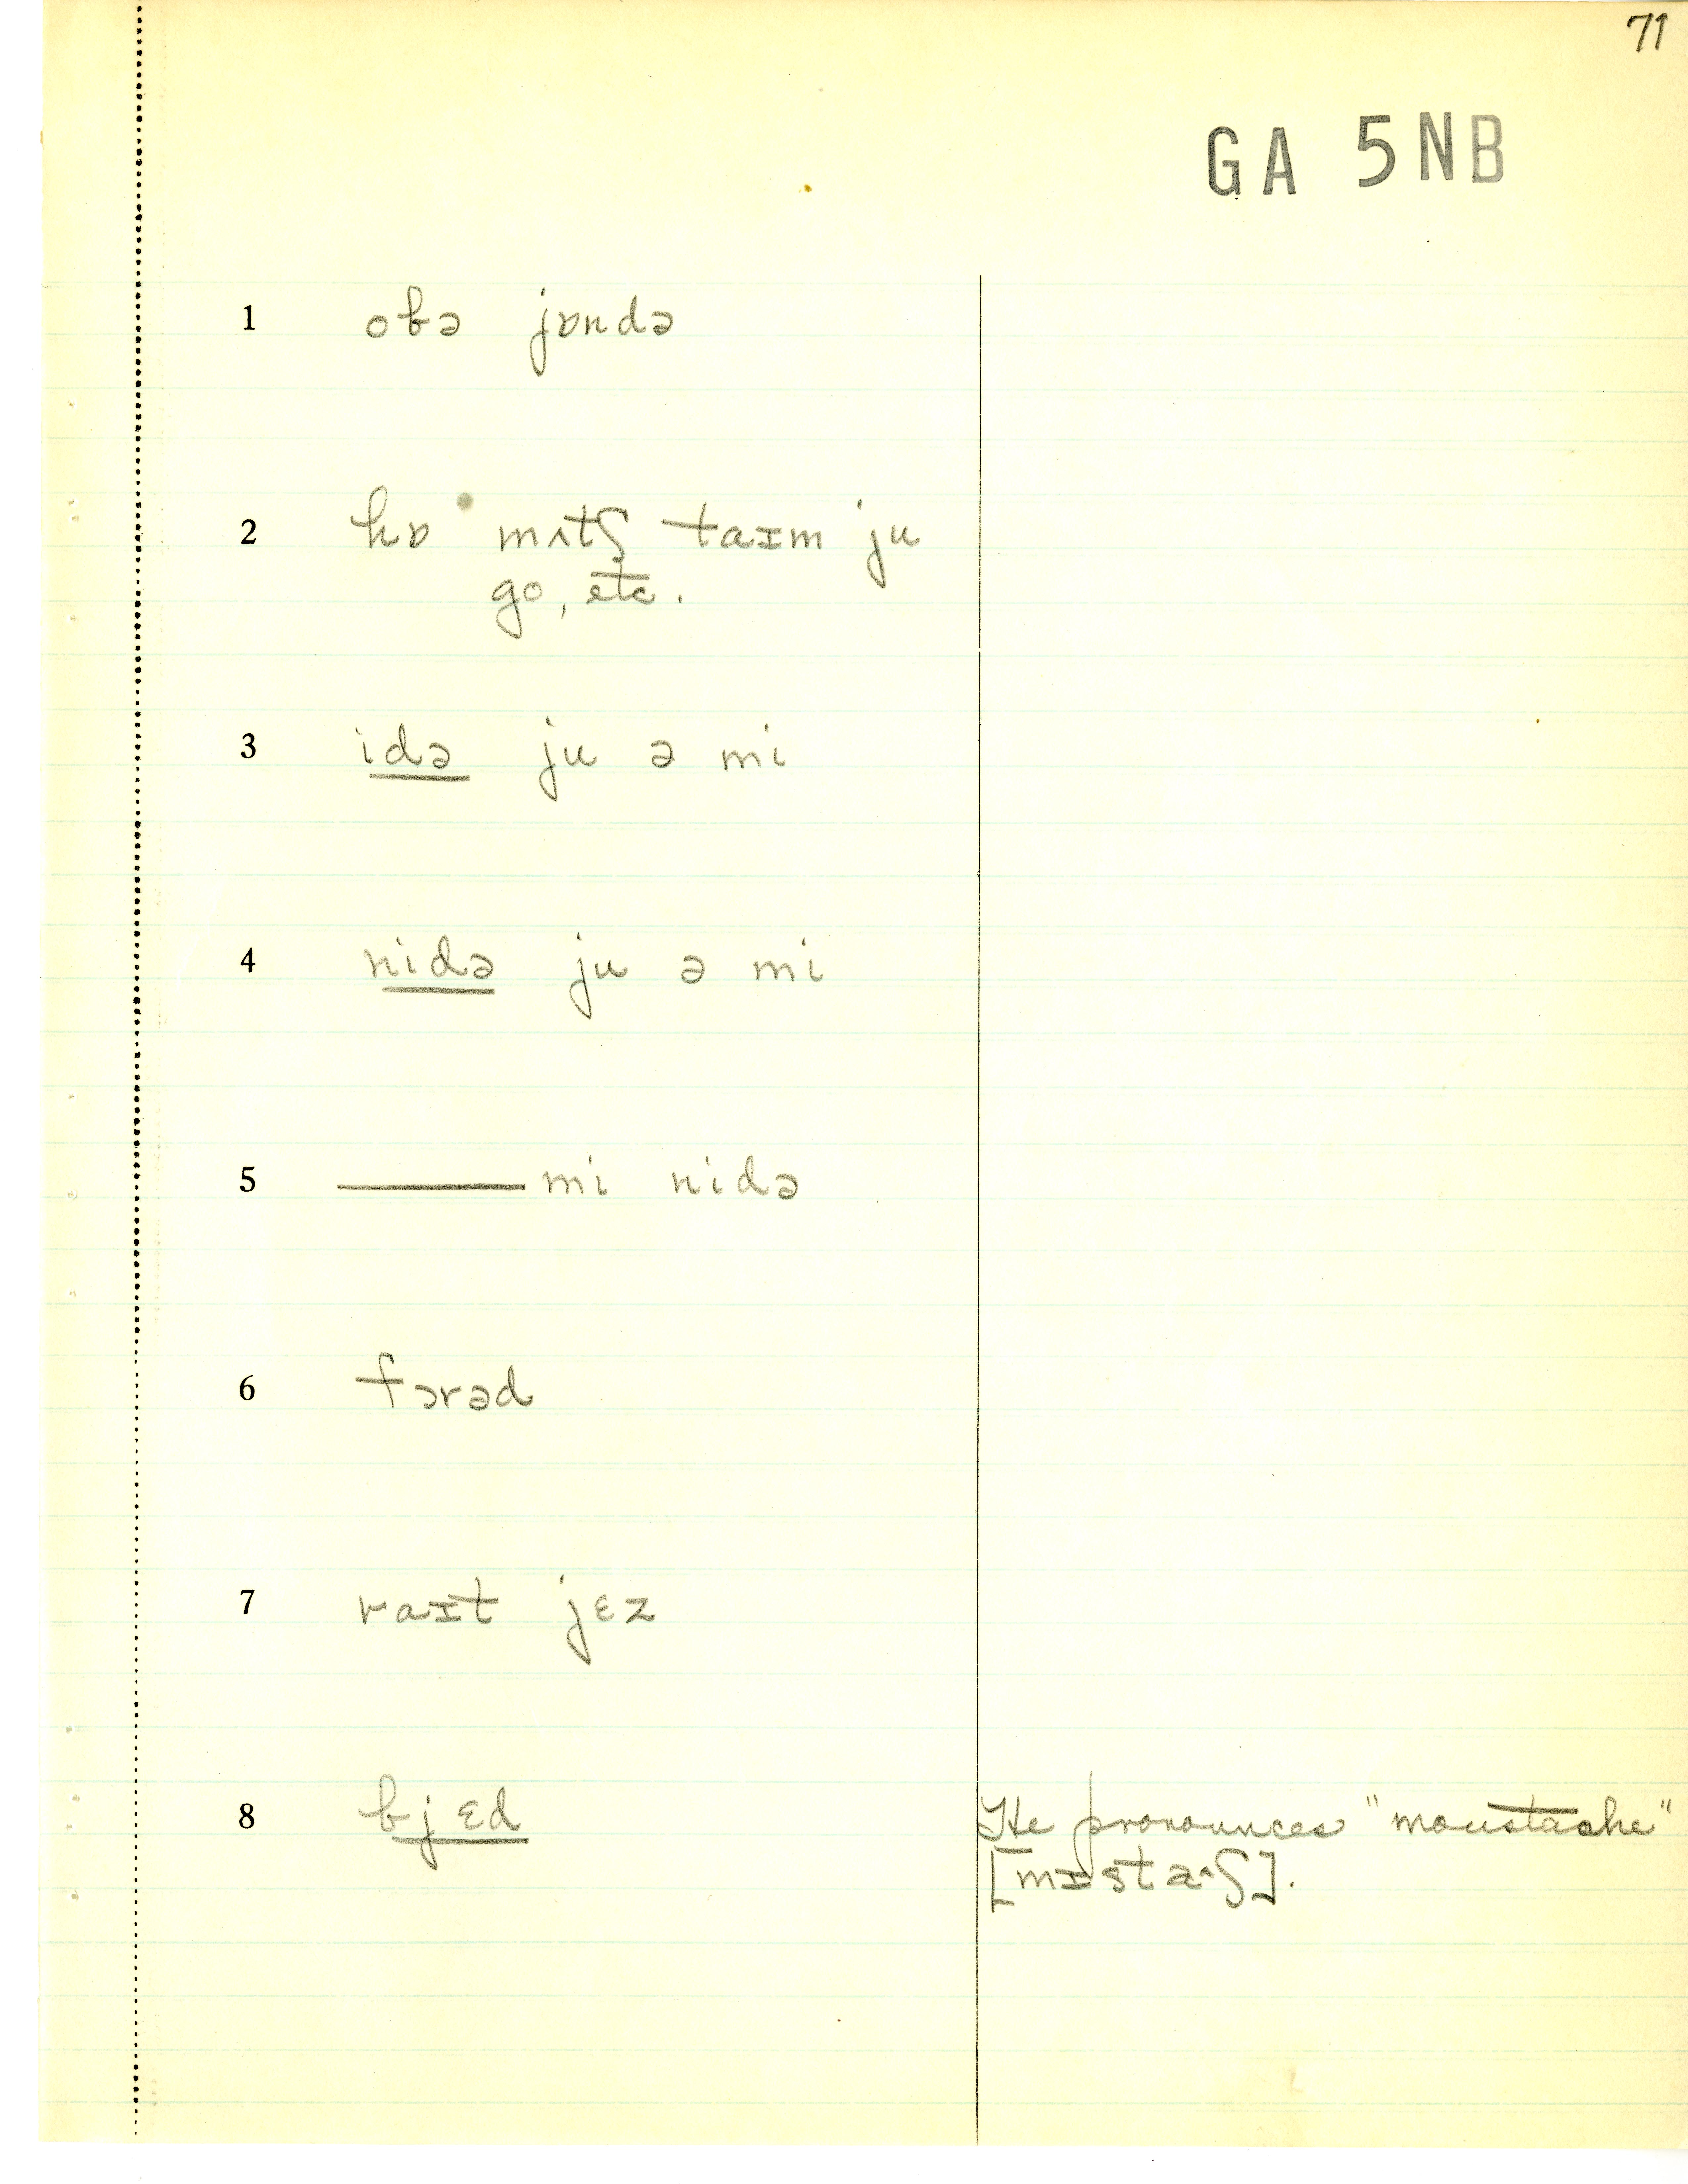 71
GA 5NB
1 obə jɒndə
2 hɒ mʌtʃ taɪm ju
go, etc.
3 idə ju ə mi
4 nidə ju ə mi
5 ——— mi nidə
6 fɔrəd
7 raɪt jɛz
8 bjɛd
He pronounces "moustache"
[mɪstaˆʃ].